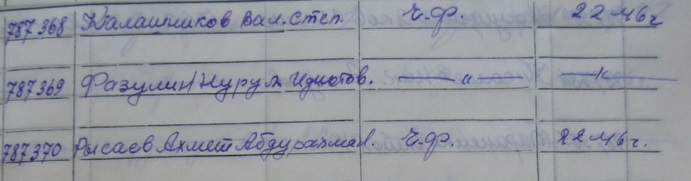 787368 Калашников Вал. Степ. Ч.ф. 22 II 46 г
787369 Фазулин Нурул Идиотов. — " — — " —
787370 Рысаев Ахмет Абдурахман. Ч.ф. 22 II 46 г.